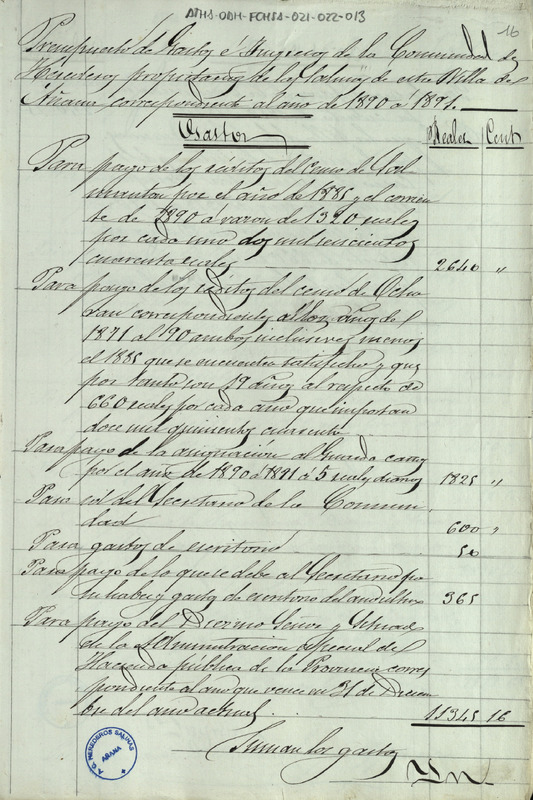 ATHA-ODH-FCHSA-021-022-013
16
Presupuesto de Gastos e Ingresos de la Comunidad de
Herederos propietarios de las Salinas de esta Villa de
Añana correspondiente al año de 1890 a 1891.
Gastos
Reales Cent
Para pago de los réditos del censo de
por el año de 1885 y el corrien
te de 1890 a razon de 1320 reales
por cada uno dos mil seiscientos
cuarenta reales 2640 "
Para pago de los réditos del censo de Ocha
ran correspondientes a los años de
1871 al 90 ambos inclusives menos
el 1885 que se encuentra satisfecho y que
por tanto son 19 años al respecto de
660 reales por cada año que importan
doce mil quinientos cuarenta
Para pago de la asignacion al Guarda campo
por el año de 1890 a 1891 á 5 reales diarios 1825 "
Para el del Secretario de la Comuni
dad 600 "
Para gastos de escritorio 50
Para pago de lo que se debe al Secretario por
su haber y gastos de escritorio del año último 365
Para pago del
de la Administracion especial de
Hacienda publica de la Provincia corres
pondiente al año que vence en 31 de Diciem
bre del año actual. 11345 16
Suman los gastos
A.C. HEREDEROS SALINAS
AÑANA